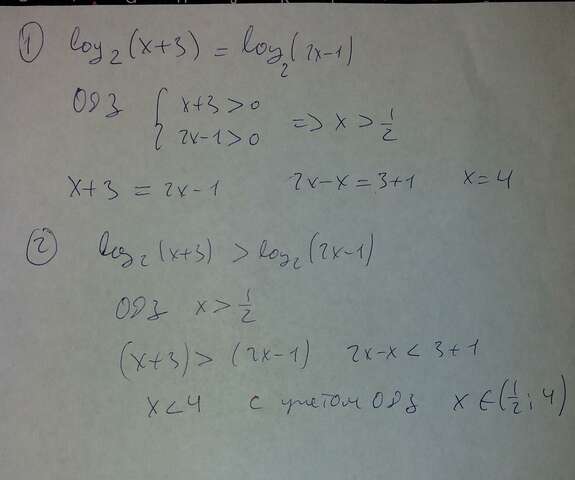 ① log₂(x+3) = log₂(2x-1)
ОДЗ { x+3>0
2x-1>0 => x > 1/2
x+3 = 2x-1 2x-x=3+1 x=4
② log₂(x+3) > log₂(2x-1)
ОДЗ x > 1/2
(x+3) > (2x-1) 2x-x < 3+1
x<4 с учетом ОДЗ x ∈ (1/2; 4)